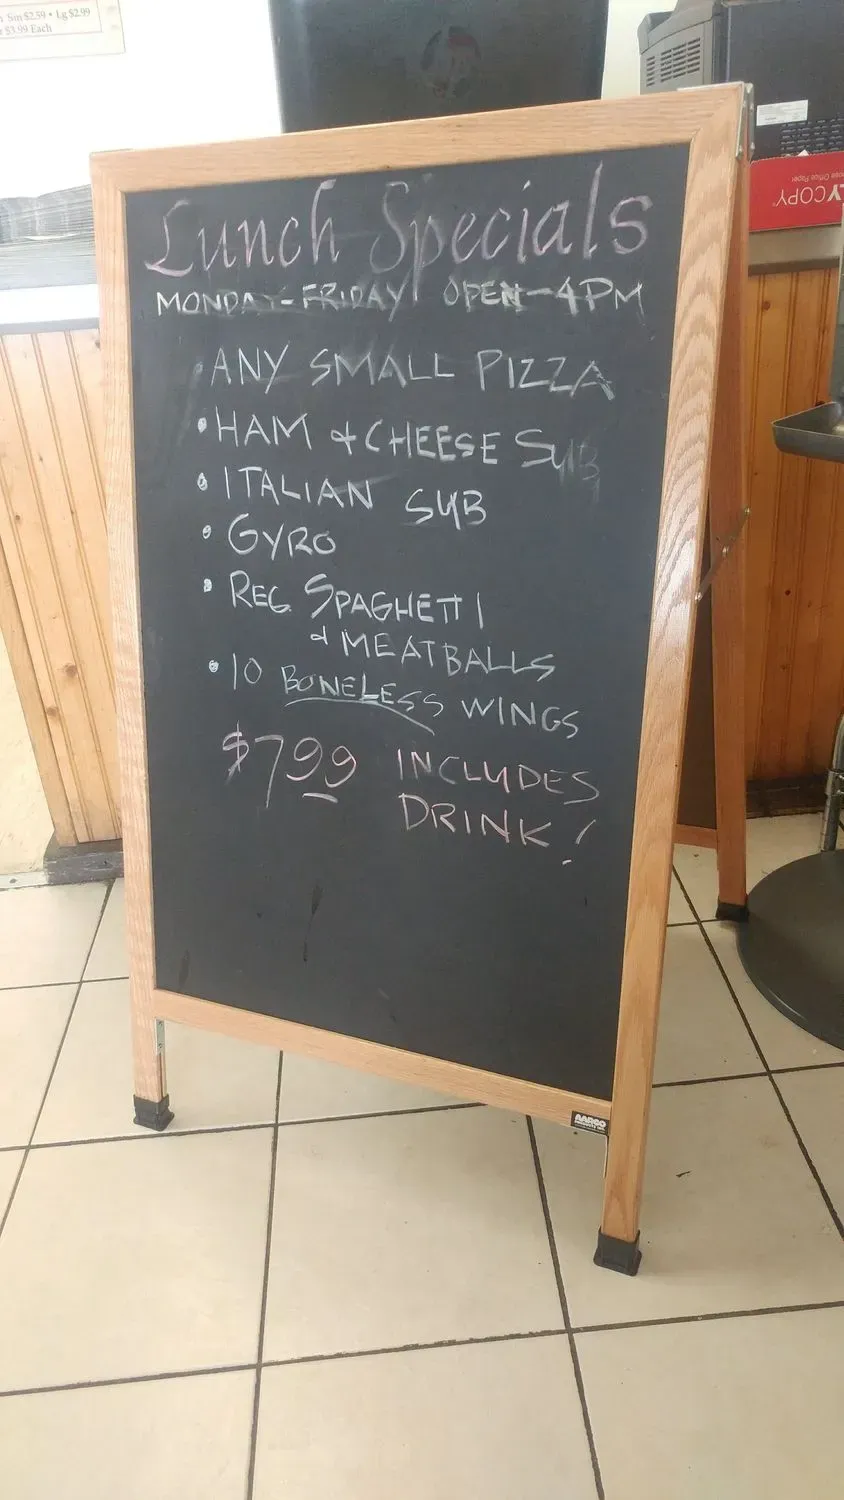 Sm $2.59 • Lg $2.99
$3.99 Each
Lunch Specials
MONDAY-FRIDAY OPEN-4PM
• ANY SMALL PIZZA
• HAM & CHEESE SUB
• ITALIAN SUB
• GYRO
• REG. SPAGHETTI
& MEATBALLS
• 10 BONELESS WINGS
$7.99 INCLUDES
DRINK!
AARCO
COPY
Office Paper